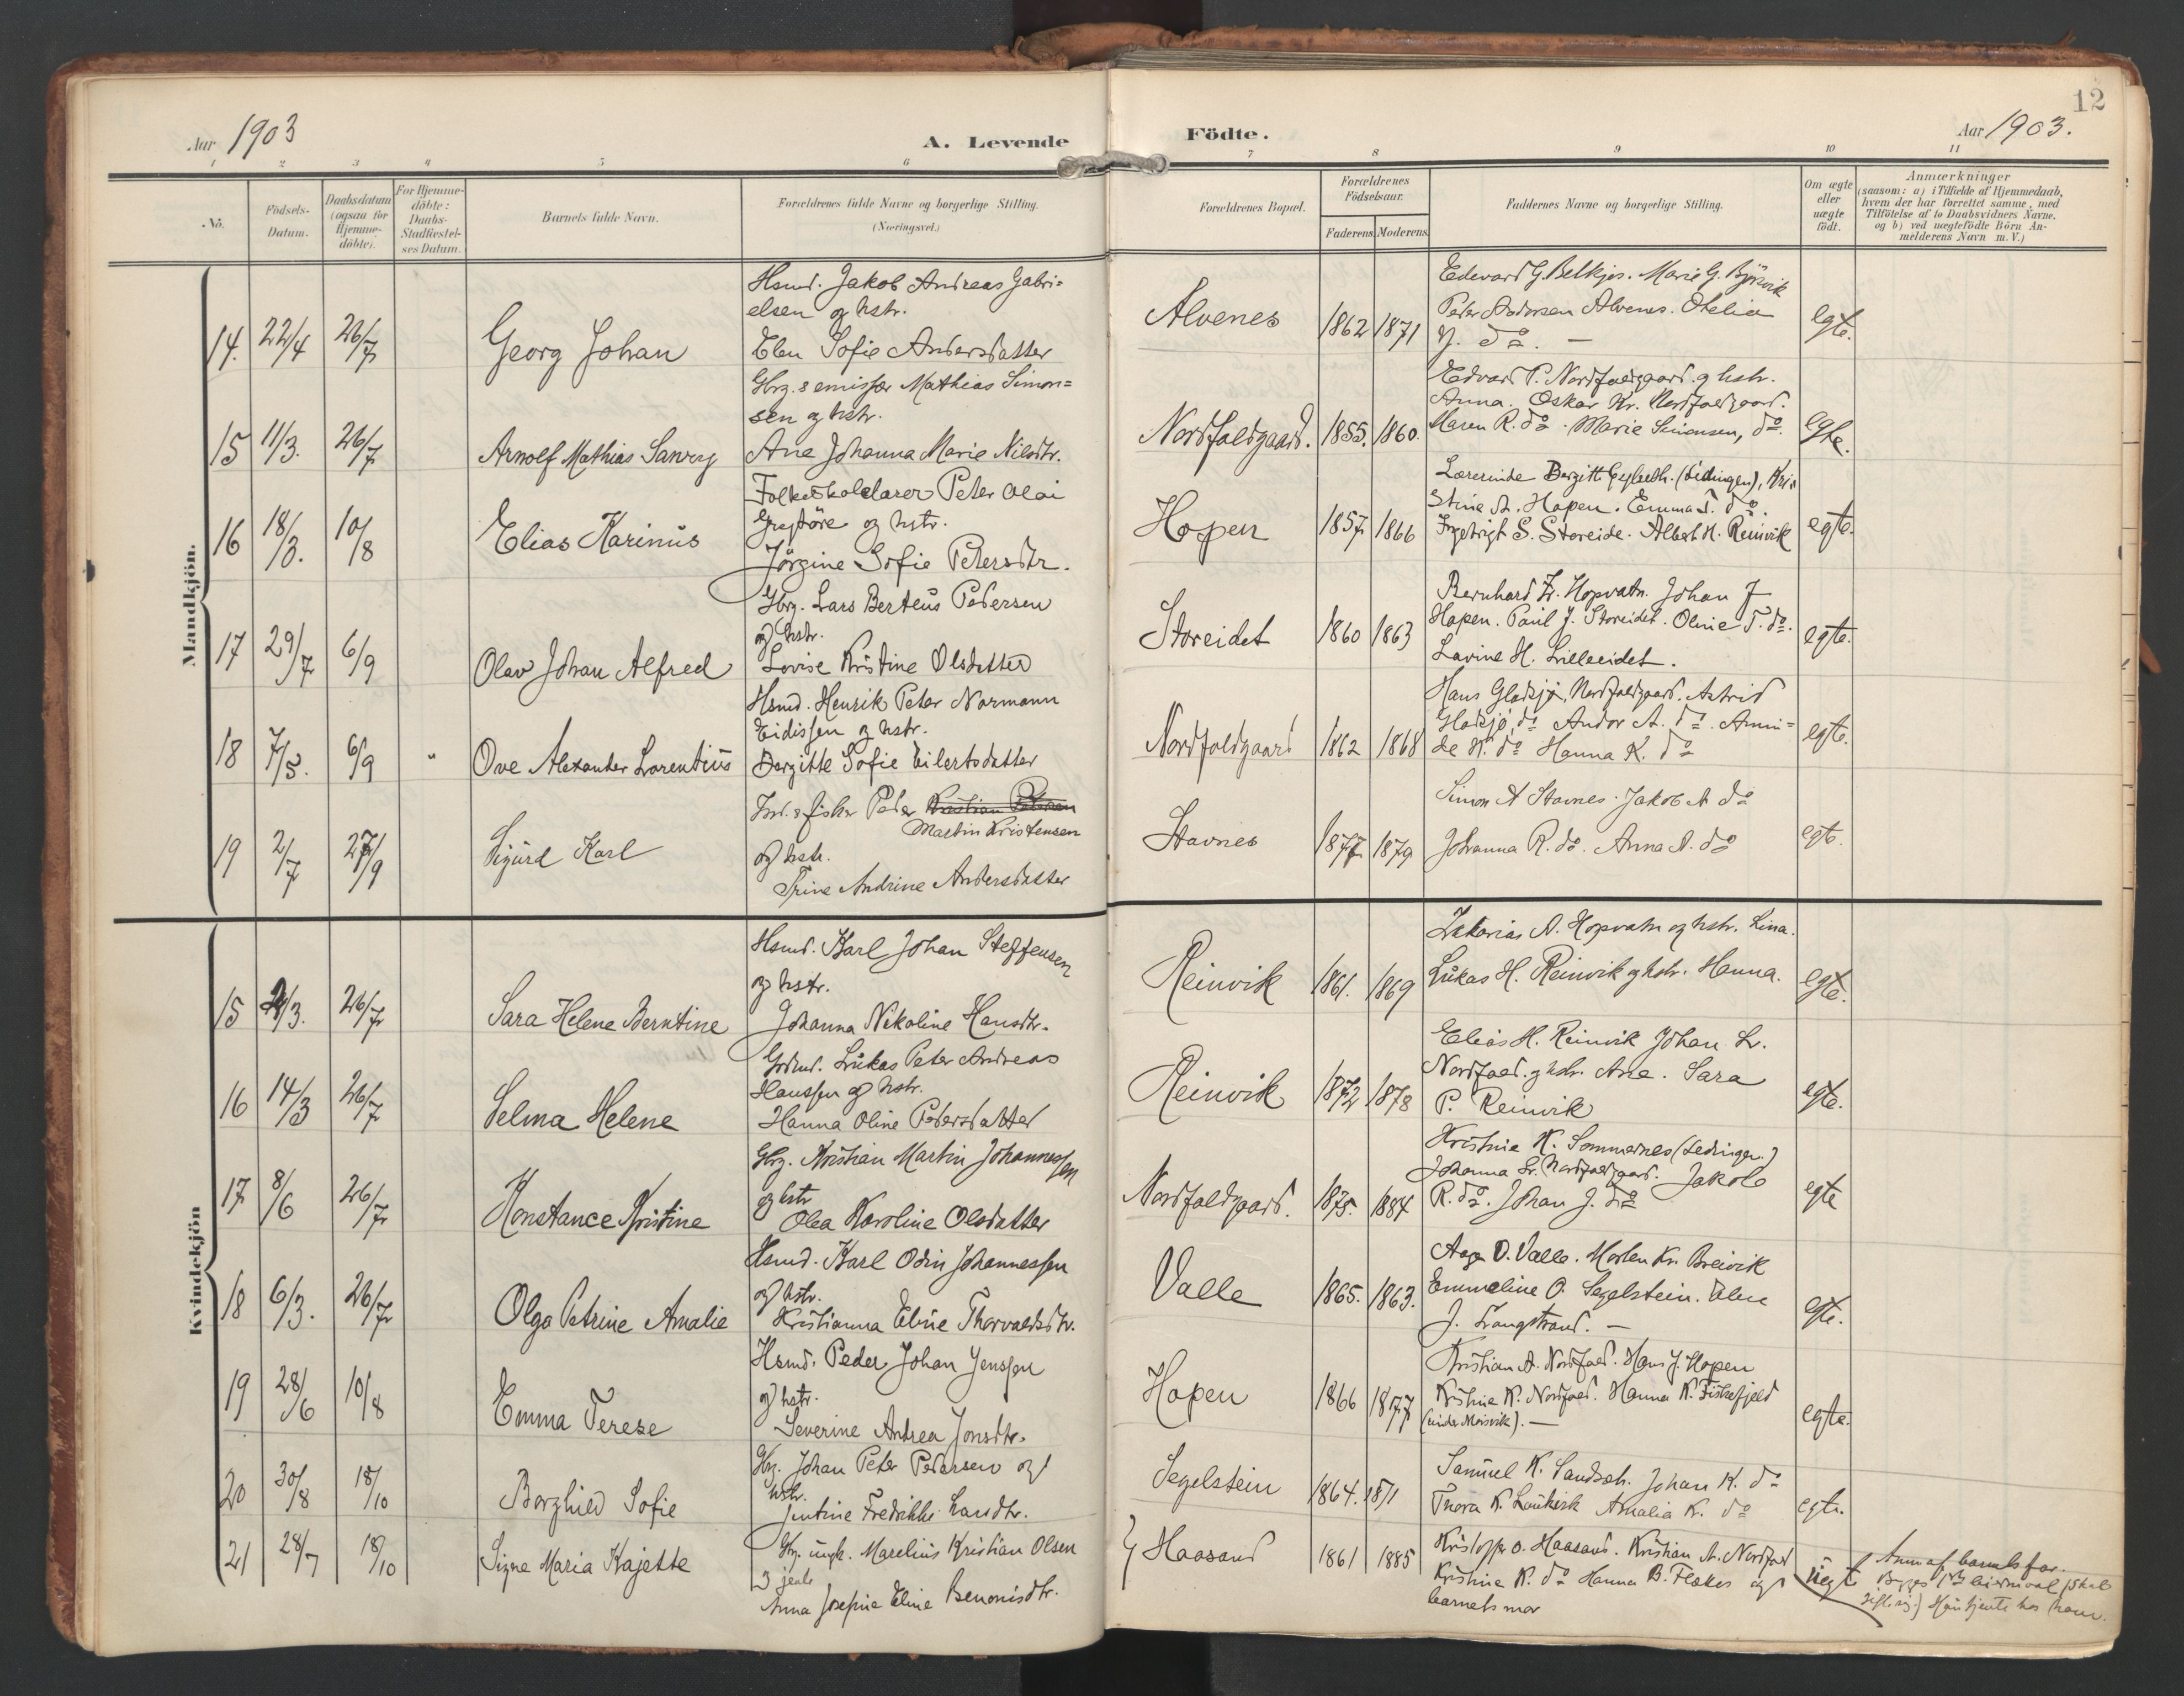 12
Aar 1903
A. Levende
Födte.
Aar 1903.
1 2 3 4 5 6 7 8 9 10 11
No.
Födsels-Datum.
Daabsdatum (ogsaa for Hjemme-döbte).
For Hjemme-döbte: Daabs-Stadfæstel-ses Datum.
Barnets fulde Navn.
Forældrenes fulde Navne og borgerlige Stilling. (Næringsvei.)
Forældrenes Bopæl.
Forældrenes Födselsaar.
Faderens. Moderens.
Faddernes Navne og borgerlige Stilling.
Om ægte eller uægte födt.
Anmærkninger
(saasom: a) i Tilfælde af Hjemmedaab,
hvem der har forrettet samme, med
Tilföielse af to Daabsvidners Navne.
og b) ved uægtefödte Börn An-
melderens Navn m. V.)
Mandkjön.
14. 22/4 26/7 Georg Johan
Hsmd. Jakob Andreas Gabri=
elsen og hstr.
Elen Sofie Andersdatter
Alvenes 1862 1871
Edevard G. Belkjos. Marie G. Björvik
Peder Andersen Alvenes. Otelia
J. do. —
egte.
15 11/3. 26/7 Arnolf Mathias
Gbrg. & emissær Mathias Simon=
sen og hstr.
Ane Johanna Marie Nilsdtr.
Nordfoldgaard. 1855. 1860.
Edvard P. Nordfoldgaard. og hstr.
Anna. Oskar Kr. Nordfoldgaard.
Maren R. do. Marie Simonsen, do.
egte.
16 18/3. 10/8 Elias Karinus
Folkeskolelærer Peter Olai
og hstr.
Jörgine Sofie Petersdtr.
Hopen 1857 1866
Lærerinde Bergitt
Stine A. Hopen. Emma J. do.
S. Storeide. Albert H. Reinvik
egte.
17 29/7 6/9 Olav Johan Alfred
Gbrg. Lars Berteus Pedersen
og hstr.
Lovise Kristine Olsdatter
Storeidet 1860 1863
Bernhard Z. Hopvatn. Johan J
Hopen. Paul J. Storeidet. Oline T. do.
Lavine H. Lilleeidet.
egte.
18 7/5. 6/9 " Ove Alexander Lorentius
Hsmd. Henrik Peter Normann
Eidissen og hstr.
Bergitte Sofie Eilertsdatter
Nordfoldgaard 1862 1868
Hans Gladsjø, Nordfoldgaard. Astrid
Gladsjø, do Andor A. do. Anni=
de K. do Hanna K. do
egte.
19 2/7 27/9 Sigurd Karl
Ind. & fisker Peder Kristian Pedersen
Martin Kristensen
og hstr.
Trine Andrine Andersdatter
Stavnes 1877 1879
Simon A Stavnes. Jakob A do
Johanna R. do. Anna A. do
egte.
Kvindekjön
15 /3. 26/7 Sara Helene Berntine
Hsmd. Karl Johan Steffensen
og hstr.
Johanna Nikoline Hansdtr.
Reinvik 1861. 1869
Zakarias A. Hopvatn og hstr. Lina.
Lukas H. Reinvik og hstr. Hanna.
egte.
16 14/3 26/7 Selma Helene
Grdmd. Lukas Peter Andreas
Hanssen og hstr.
Hanna Oline Pedersdatter
Reinvik 1872 1878
Elias H. Reinvik Johan L.
Nordfold. og hstr. Ane. Sara
P. Reinvik
egte.
17 8/6 26/7 Konstance Kristine
Gbrg. Kristian Martin Johannessen
og hstr
Olea Karoline Olsdatter
Nordfoldgaard. 1875. 1884
Kristine K. Sommernes (Ledingen.)
Johanna L. Nordfoldgaard. Jakob
R. do. Johan J. do
egte
18 6/3. 26/7 Olga Petrine Amalie
Hsmd. Karl Odin Johannessen
og hstr.
Kristianna Eline Thorvaldsdtr.
Valle 1865. 1863.
Aage O. Valle. Morten Kr. Breivik
Emmeline O. Segelstein. Eline
J. Langstrand. —
egte.
19 28/6 10/8 Emma Terese
Hsmd. Peder Johan Jenssen
og hstr.
Severine Andrea Jonsdtr.
Hopen 1866 1877
Kristian A. Nordfold. Hans J. Hopen
Kristine K. Nordfold. Hanna K. Fiskefjeld
(under Moisvik). —
egte.
20 30/8 18/10 Borghild Sofie
Gbrg. Johan Peter Pedersen og
hstr.
Jentine Fredrikke Larsdtr.
Segelstein 1864. 1871
Samuel K. Johan K. do
Thora K. Amalia K. do
egte.
21 28/7 18/10 Signe Maria Kajette
Gbrg. ungk. Marelius Kristian Olsen
Anna Josefine Eline Benonisdtr.
Haasand 1861 1885
Kristoffer O. Haasand. Kristian A. Nordfold
Kristine K. do Hanna B. Flekes og
barnets mor
uegte
Anm af barnets far.
Begges 1ste leiermaal (skal
giftes.) Hun tjente hos ham.